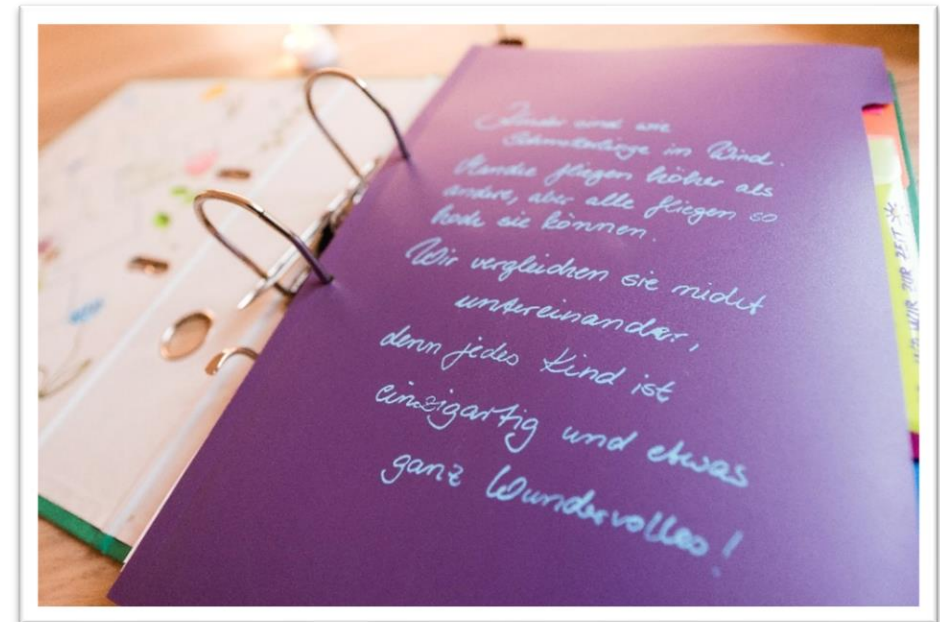 Kinder sind wie
Schmetterlinge im Wind.
Manche fliegen höher als
andere, aber alle fliegen so
hoch sie können.
Wir vergleichen sie nicht
untereinander,
denn jedes Kind ist
einzigartig und etwas
ganz Wundervolles!
WIR ZUR ZEIT